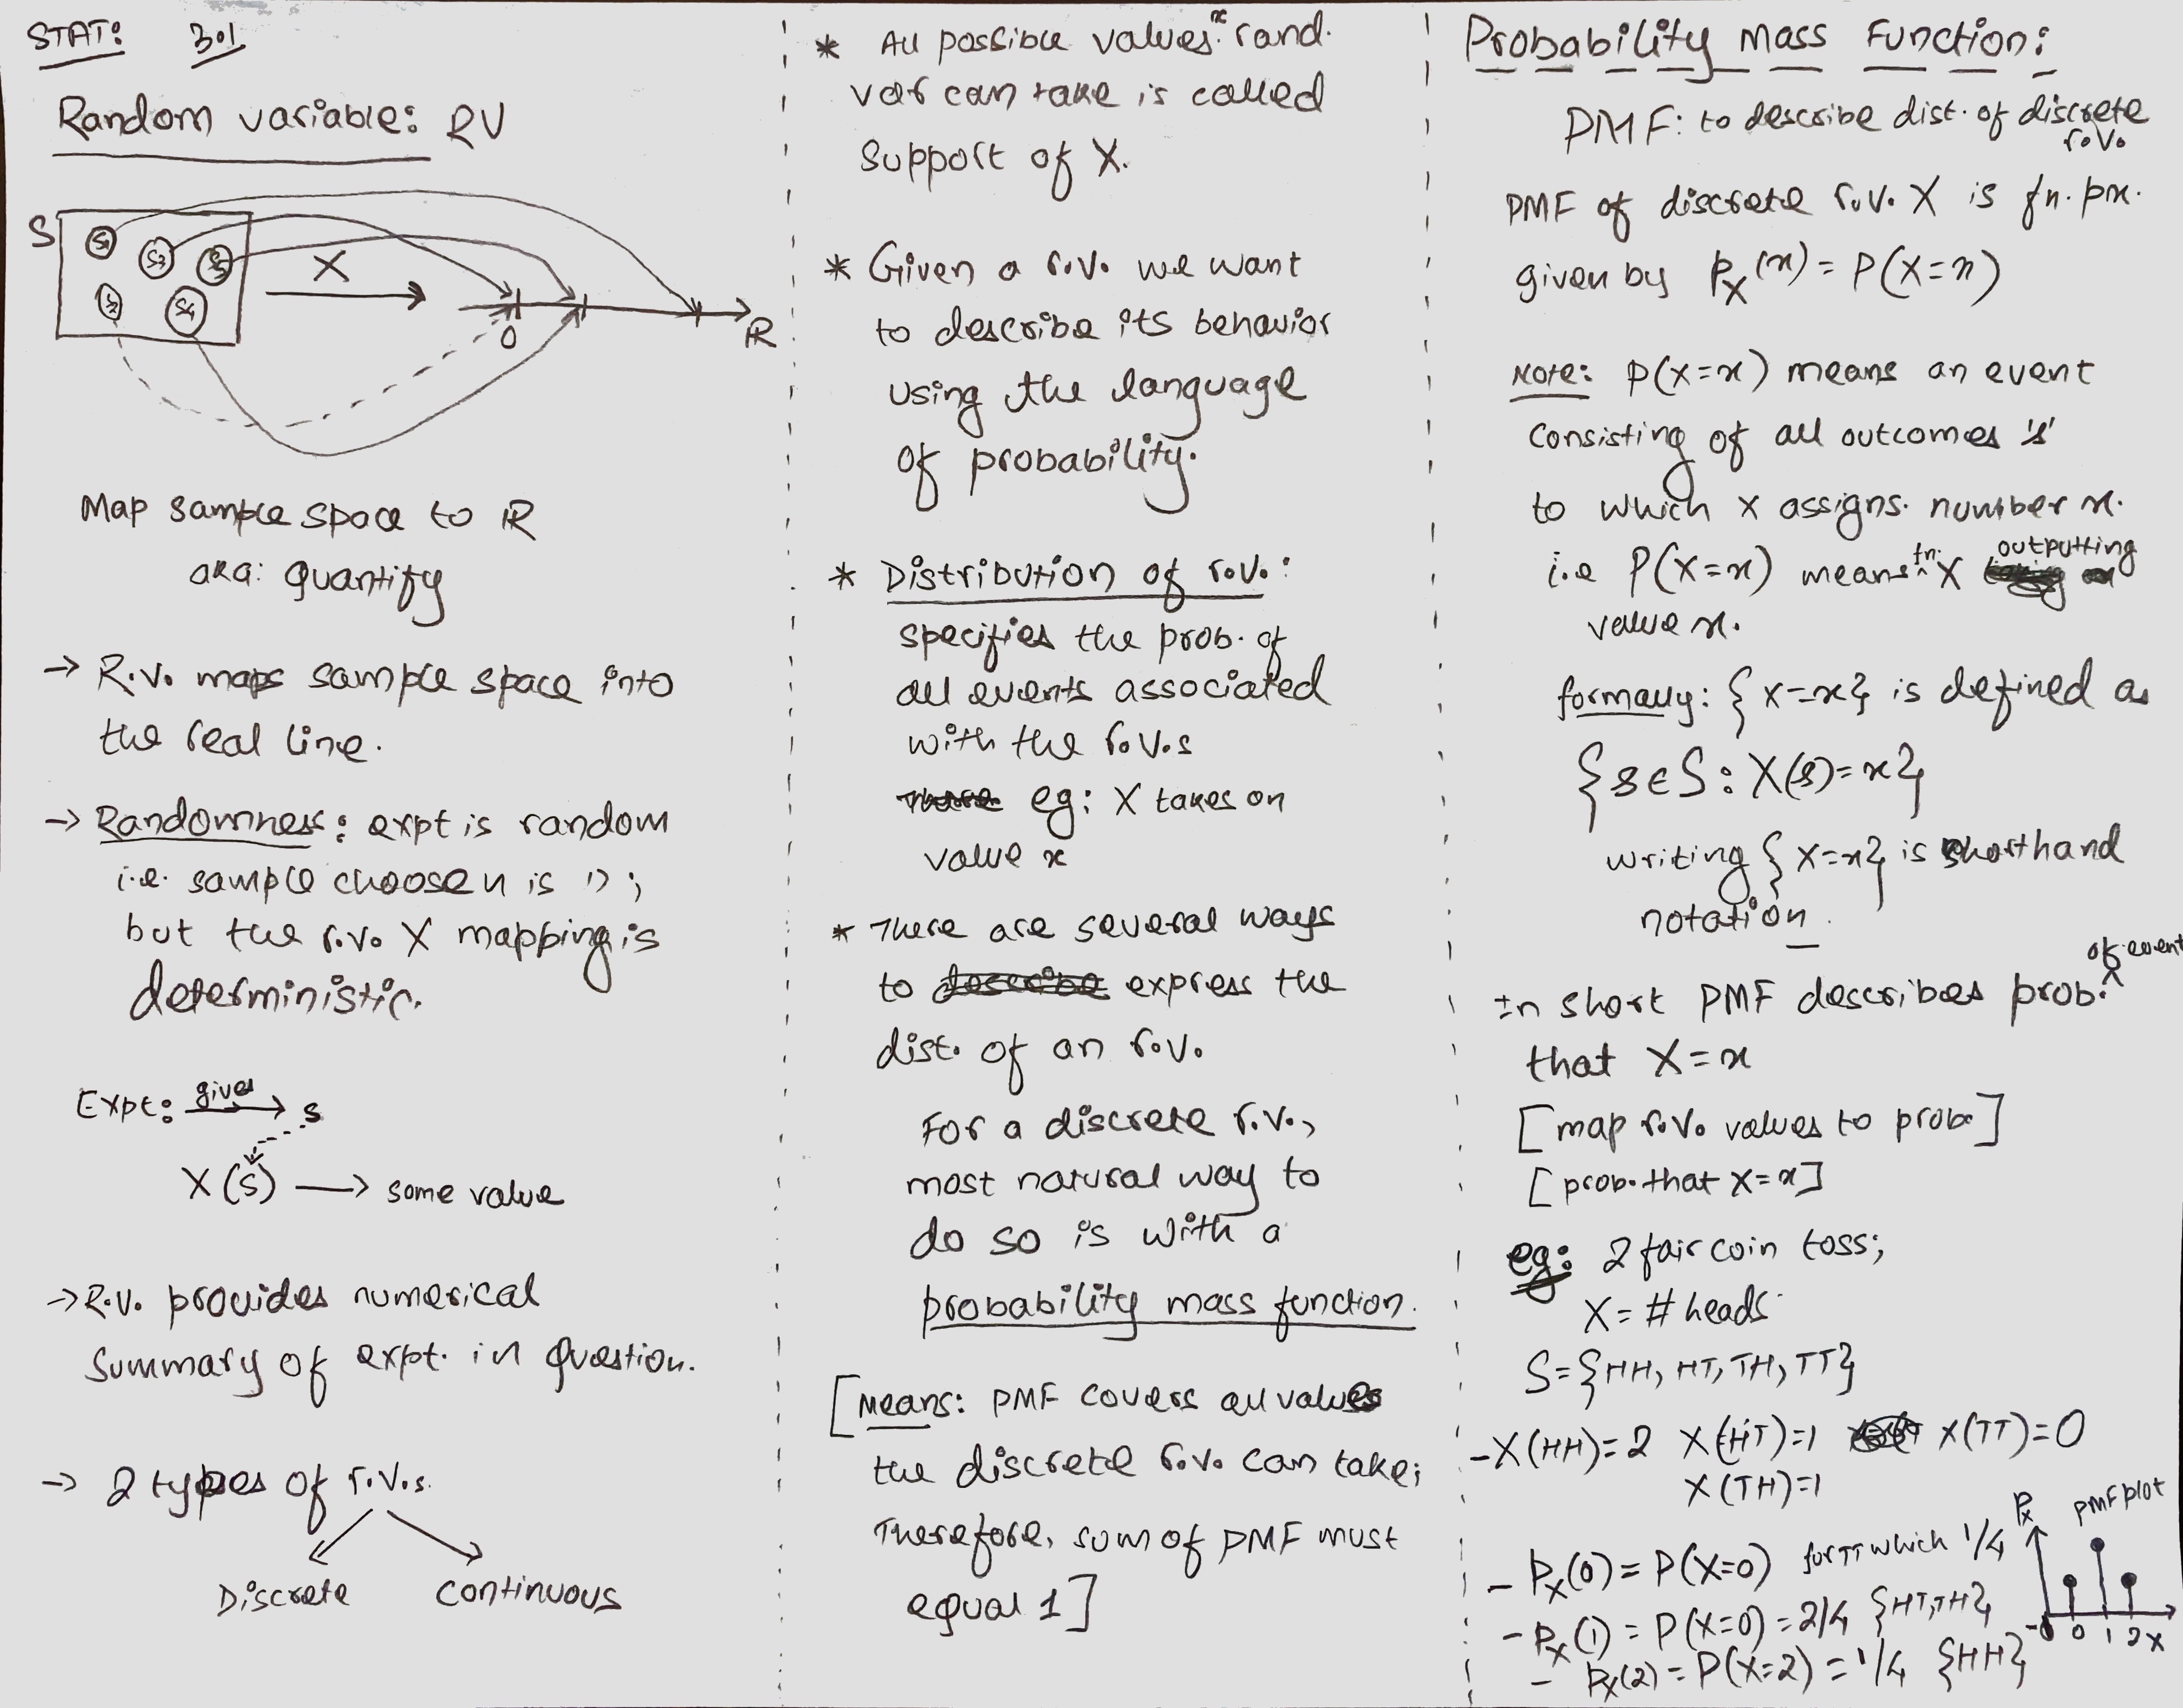 STAT: 3.1
Random variable: RV
S
S1 S3 S5
S2 S4
X
0
ℝ
Map sample space to ℝ
aka: quantify
→ R.V. maps sample space into
the real line.
→ Randomness: expt is random
i.e. sample choosen is 1);
but the r.v. X mapping is
deterministic.
Expt: gives → s
X(s) → some value
→ R.V. provides numerical
summary of expt. in question.
→ 2 types of r.v.s.
Discrete continuous
* All possible values x rand.
var can take is called
support of X.
* Given a r.v. we want
to describe its behavior
using the language
of probability.
* Distribution of r.v.:
specifies the prob. of
all events associated
with the r.v.s
eg: X takes on
value x
* There are several ways
to describe express the
dist. of an r.v.
For a discrete r.v.,
most natural way to
do so is with a
probability mass function.
[Means: PMF covers all values
the discrete r.v. can take;
Therefore, sum of PMF must
equal 1]
Probability Mass Function:
PMF: to describe dist. of discrete
r.v.
PMF of discrete r.v. X is fn. px.
given by Px(x) = P(X=x)
Note: P(X=x) means an event
consisting of all outcomes 's'
to which X assigns. number x.
i.e P(X=x) means fn. X outputting
value x.
formally: {X=x} is defined as
{s∈S: X(s)=x}
writing {X=x} is shorthand
notation.
In short PMF describes prob. of event
that X=x
[map r.v. values to prob.]
[prob. that X=x]
eg: 2 fair coin toss;
X = # heads.
S={HH, HT, TH, TT}
-X(HH)=2 X(HT)=1 X(TT)=0
X(TH)=1
- Px(0) = P(X=0) for TT which 1/4
- Px(1) = P(X=0) = 2/4 {HT,TH}
- Px(2) = P(X=2) = 1/4 {HH}
Px PMF plot
0 1 2 X